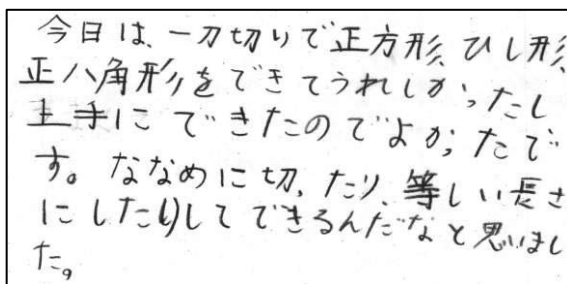 今日は、一刀切りで正方形、ひし形、
正八角形をできてうれしかったし
上手にできたのでよかったで
す。ななめに切ったり、等しい長さ
にしたりしてできるんだなと思いまし
た。